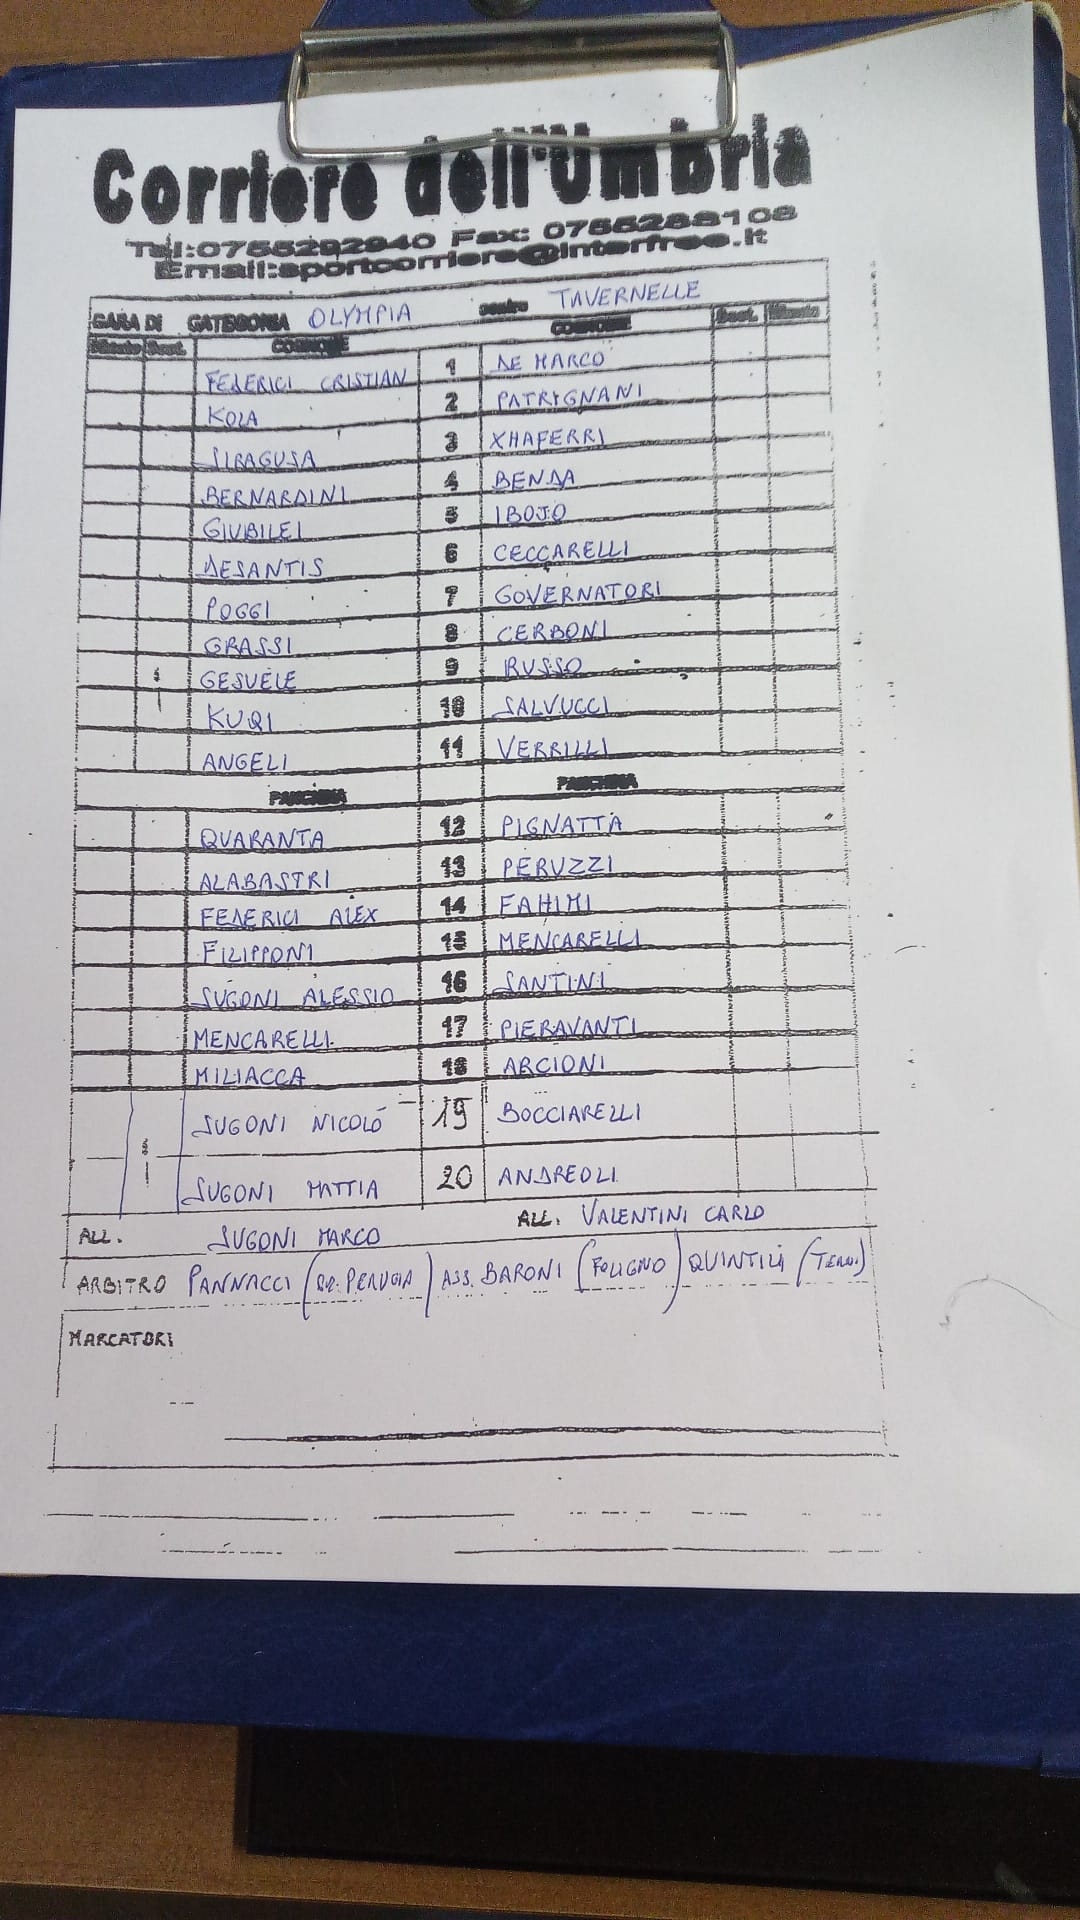 Corriere dell'Umbria
Tel:0755292940 Fax: 0755288108
Email:sportcorriere@interfree.it
GARA DI CATEGORIA OLYMPIA contro TAVERNELLE
Minuto Sost. COGNOME COGNOME Sost. Minuto
FEDERICI CRISTIAN 1 DE MARCO
KOLA 2 PATRIGNANI
SIRAGUSA 3 XHAFERRI
BERNARDINI 4 BENDA
GIUBILEI 5 IBOJO
DESANTIS 6 CECCARELLI
POGGI 7 GOVERNATORI
GRASSI 8 CERBONI
GESUELE 9 RUSSO
KUQI 10 SALVUCCI
ANGELI 11 VERRILLI
PANCHINA PANCHINA
QUARANTA 12 PIGNATTA
ALABASTRI 13 PERUZZI
FEDERICI ALEX 14 FAHIMI
FILIPPONI 15 MENCARELLI
SUGONI ALESSIO 16 SANTINI
MENCARELLI 17 PIERAVANTI
MILIACCA 18 ARCIONI
SUGONI NICOLÓ 19 BOCCIARELLI
SUGONI MATTIA 20 ANDREOLI
ALL. SUGONI MARCO ALL. VALENTINI CARLO
ARBITRO PANNACCI (SZ. PERUGIA) ASS. BARONI (FOLIGNO) QUINTILI (TERNI)
MARCATORI